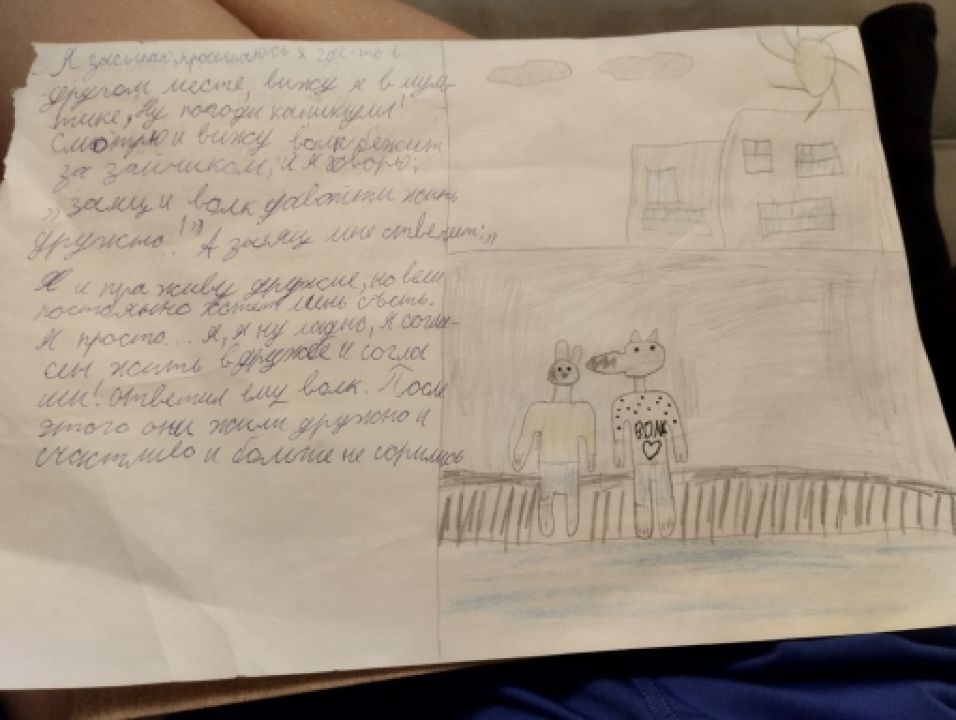 Я засыпаю, просыпаюсь я где-то в
другом месте, вижу я в муль-
тике, Ну погоди каникулы!
Смотрю и вижу волк бежит
за зайчиком, и я говорю;
„ заяц и волк давайти жить
дружно!" А заяц мне ответил:»
Я и пра живу дружне, но волк
постоянно хотет мень съесть.
Я просто... Я, я ну ладно, я согла-
сен жить в дружбе и согла
ши! Ответил ему волк. После
этого они жили дружно и
счастливо и больше не сорились
ВОЛК